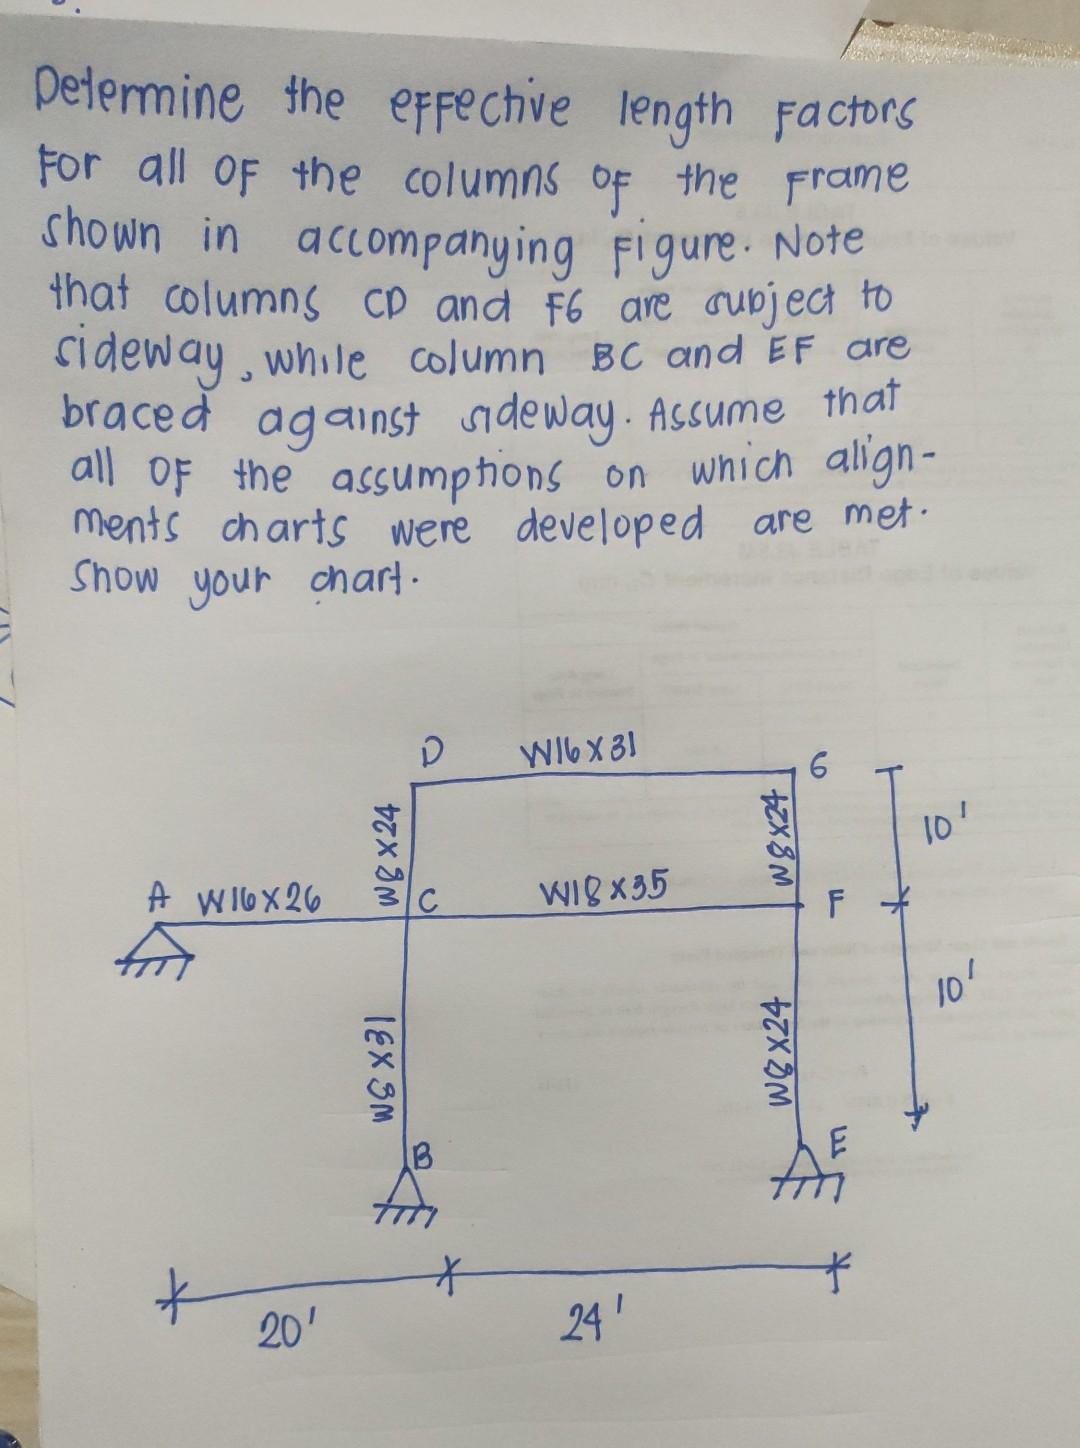 Determine the effective length factors
for all of the columns of the frame
shown in accompanying figure. Note
that columns CD and FG are subject to
sideway, while column BC and EF are
braced against sideway. Assume that
all of the assumptions on which align-
ments charts were developed are met.
Show your chart.
D W16X31 G
W8X24
W8X24
10'
A W16X26 C W18X35 F
W8X31
W8X24
10'
B
E
20' 24'